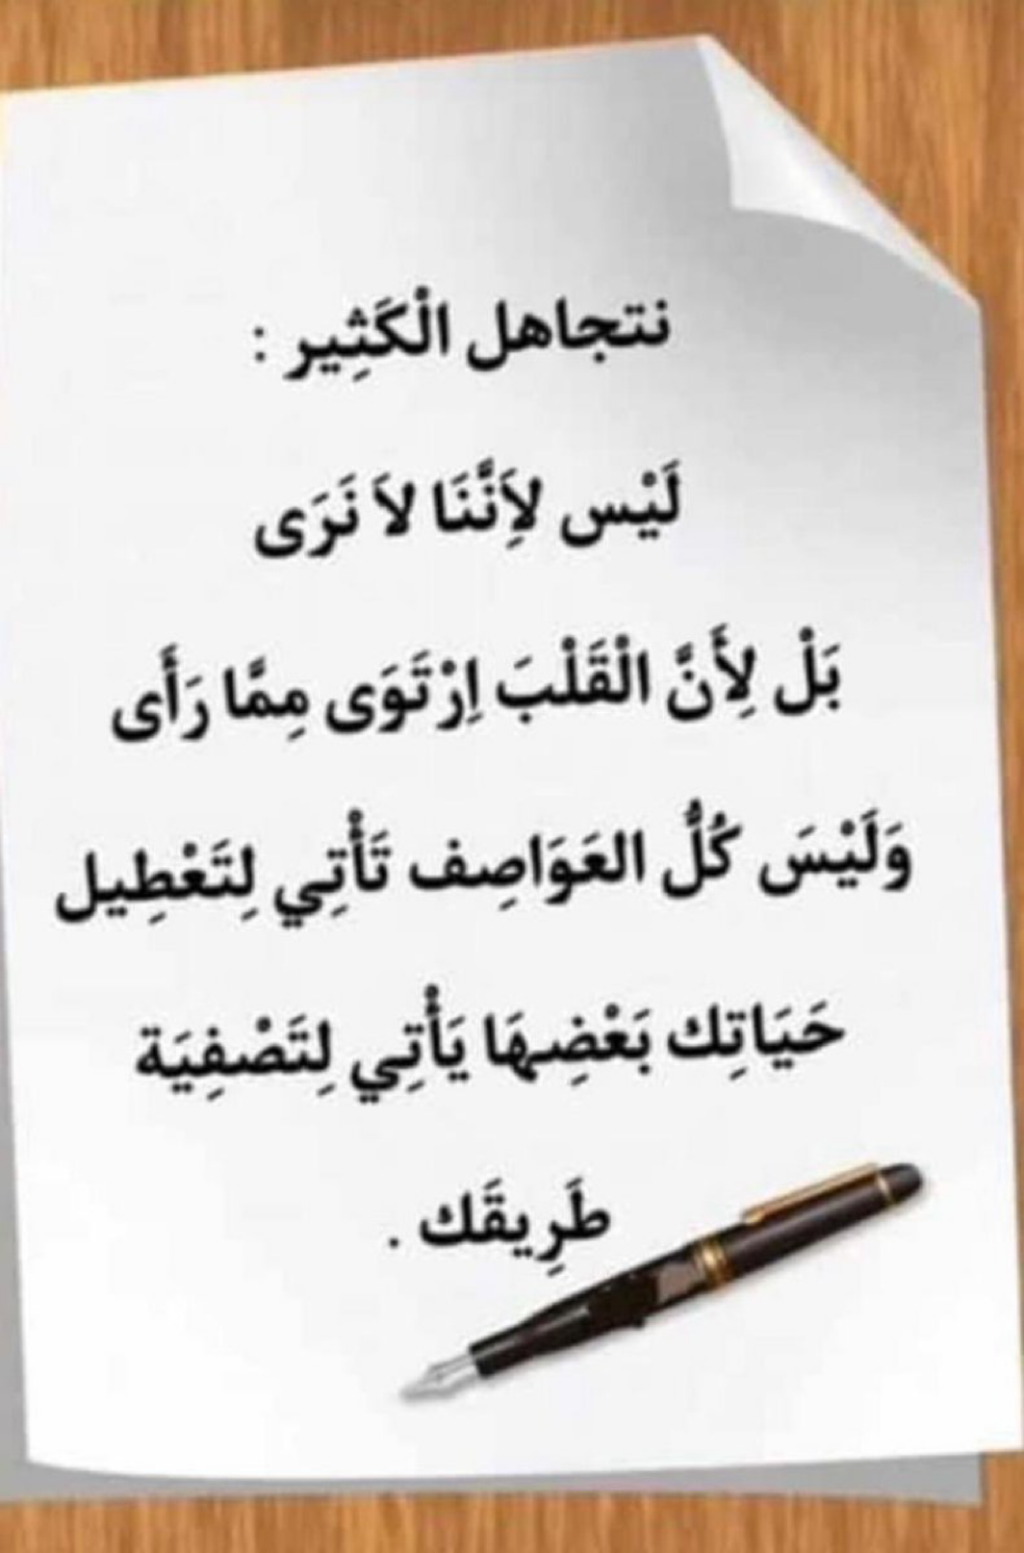 نتجاهل الْكَثِير :
لَيْس لاَِنَّنَا لاَ نَرَى
بَلْ لِأَنَّ الْقَلْبَ اِرْتَوَى مِمَّا رَأَى
وَلَيْسَ كُلُّ العَوَاصِف تَأْتِي لِتَعْطِيل
حَيَاتِك بَعْضِهَا يَأْتِي لِتَصْفِيَة
طَرِيقَك .